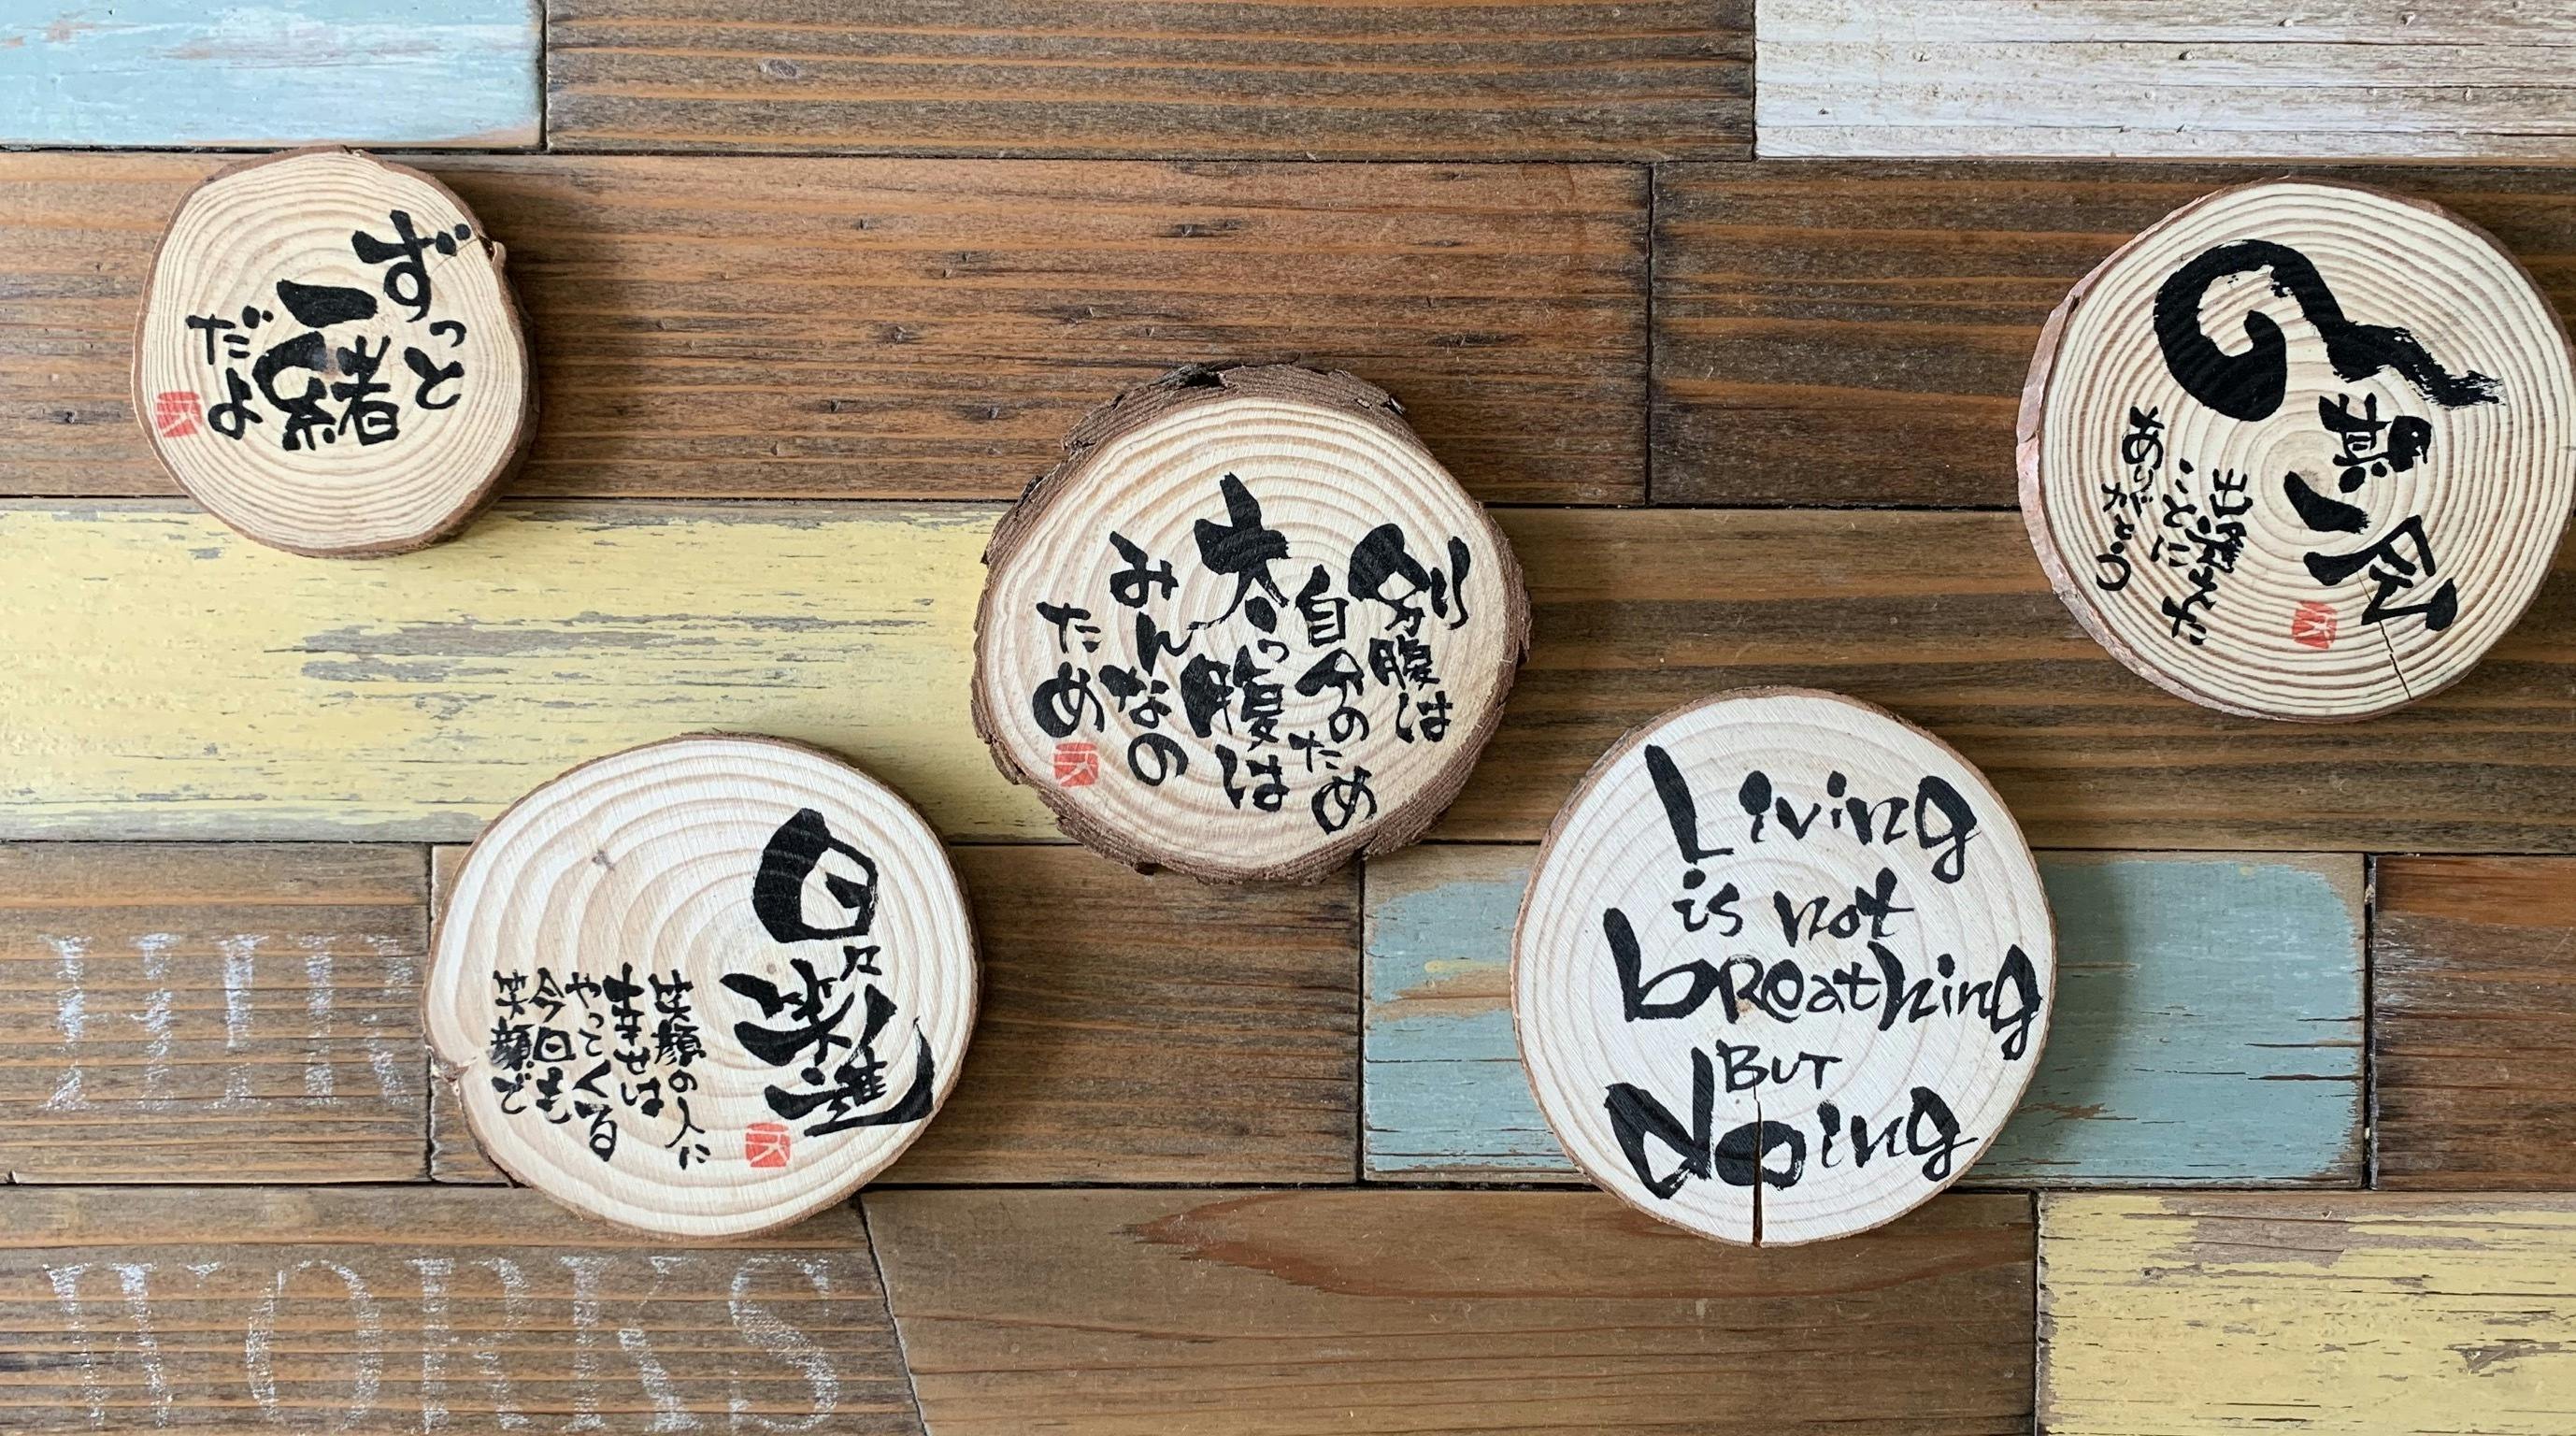 ずっと
一緒
だよ
別腹は
自分のため
太っ腹は
みんなの
ため
一期一会
出逢えた
ことに
ありがとう
日々楽進
笑顔の人に
幸せは
やってくる
今日も
笑顔で
Living
is not
breathing
BUT
doing
WORKS